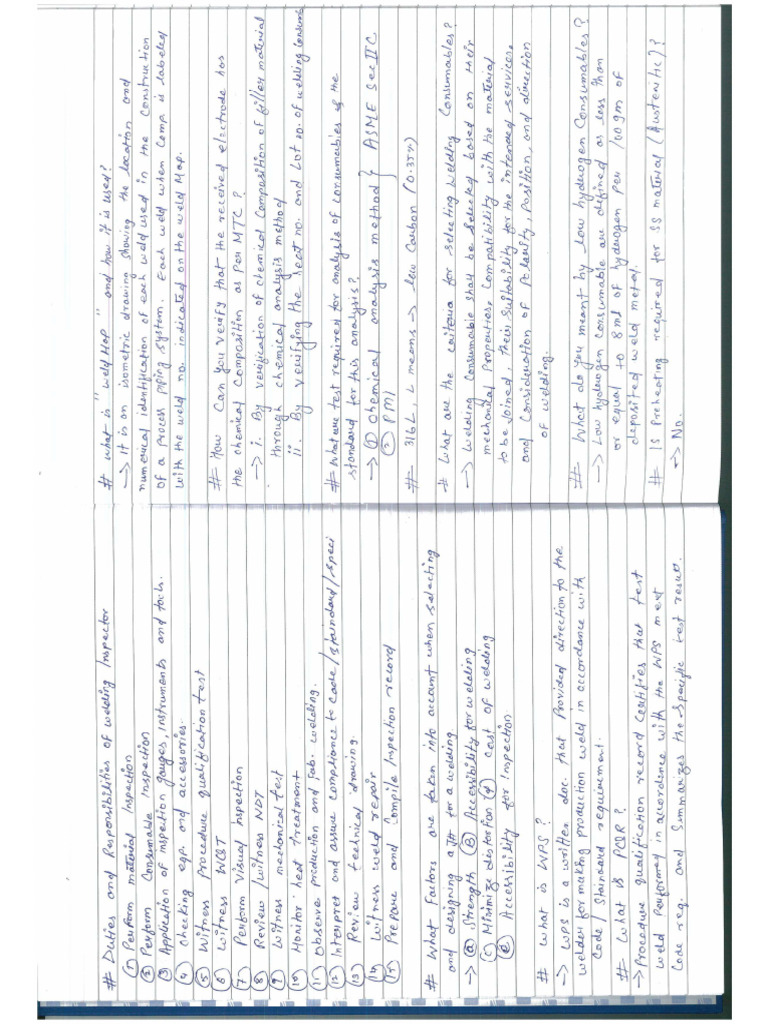 # Duties and Responsibilities of welding Inspector
① Perform material Inspection
② Perform Consumable Inspection
③ Application of inspection gauges, instruments and tools.
④ Checking eqp. and accessories.
⑤ Witness procedure qualification test
⑥ Witness WQT
⑦ Perform Visual Inspection
⑧ Review / witness NDT
⑨ Witness mechanical test
⑩ Monitor heat treatment
⑪ Observe production and fab. welding.
⑫ Interpret and assure compliance to code / standard / speci
⑬ Review technical drawing.
⑭ Witness weld repair
⑮ Prepare and Compile Inspection record
# What factors are taken into account when selecting
and designing a Jt for a welding
→ ⓐ Strength ⓑ Accessibility for welding
ⓒ Minimize distor ⓓ Cost of welding
ⓔ Accessibility for Inspection.
# What is WPS?
→ WPS is a written doc. that Provided direction to the
welder for making production weld in accordance with
Code / Standard requirement.
# What is PQR?
→ Procedure qualification record certifies that test
weld Performed in accordance with the WPS meet
Code req. and Summarizes the specific test result.
# What is "Weld Map" and how it is used?
→ It is an isometric drawing showing the location and
numerical identification of each weld used in the Construction
of a process piping system. Each weld when Comp. is labeled
with the weld no. indicated on the weld Map.
# How Can you verify that the received electrode has
the chemical Composition as per MTC?
→ i. By verification of chemical Composition of filler material
through chemical analysis method
ii. By verifying the heat no. and Lot no. of welding Consum
# What are test required for analysis of consumables & the
standard for this analysis?
→ ① Chemical analysis method } ASME Sec II C
② PMI
# 316L, L means → low Carbon (0.35%)
# What are the criteria for selecting welding Consumables?
→ Welding Consumable shall be selected based on their
mechanical Properties, Compatibility with the material
to be Joined, their suitability for the intended services,
and Consideration of Polarity, Position, and direction
of welding.
# What do you meant by low hydrogen Consumables?
→ Low hydrogen Consumable are defined as less than
or equal to 8 ml of hydrogen per 100gm of
deposited weld metal.
# Is Preheating required for SS material (Austenitic)?
→ No.